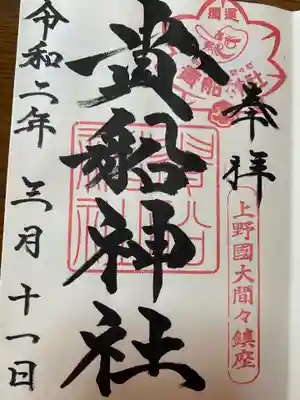 開運
貴船神社
奉拝
上野國大間々鎮座
貴船神社
令和二年三月十一日